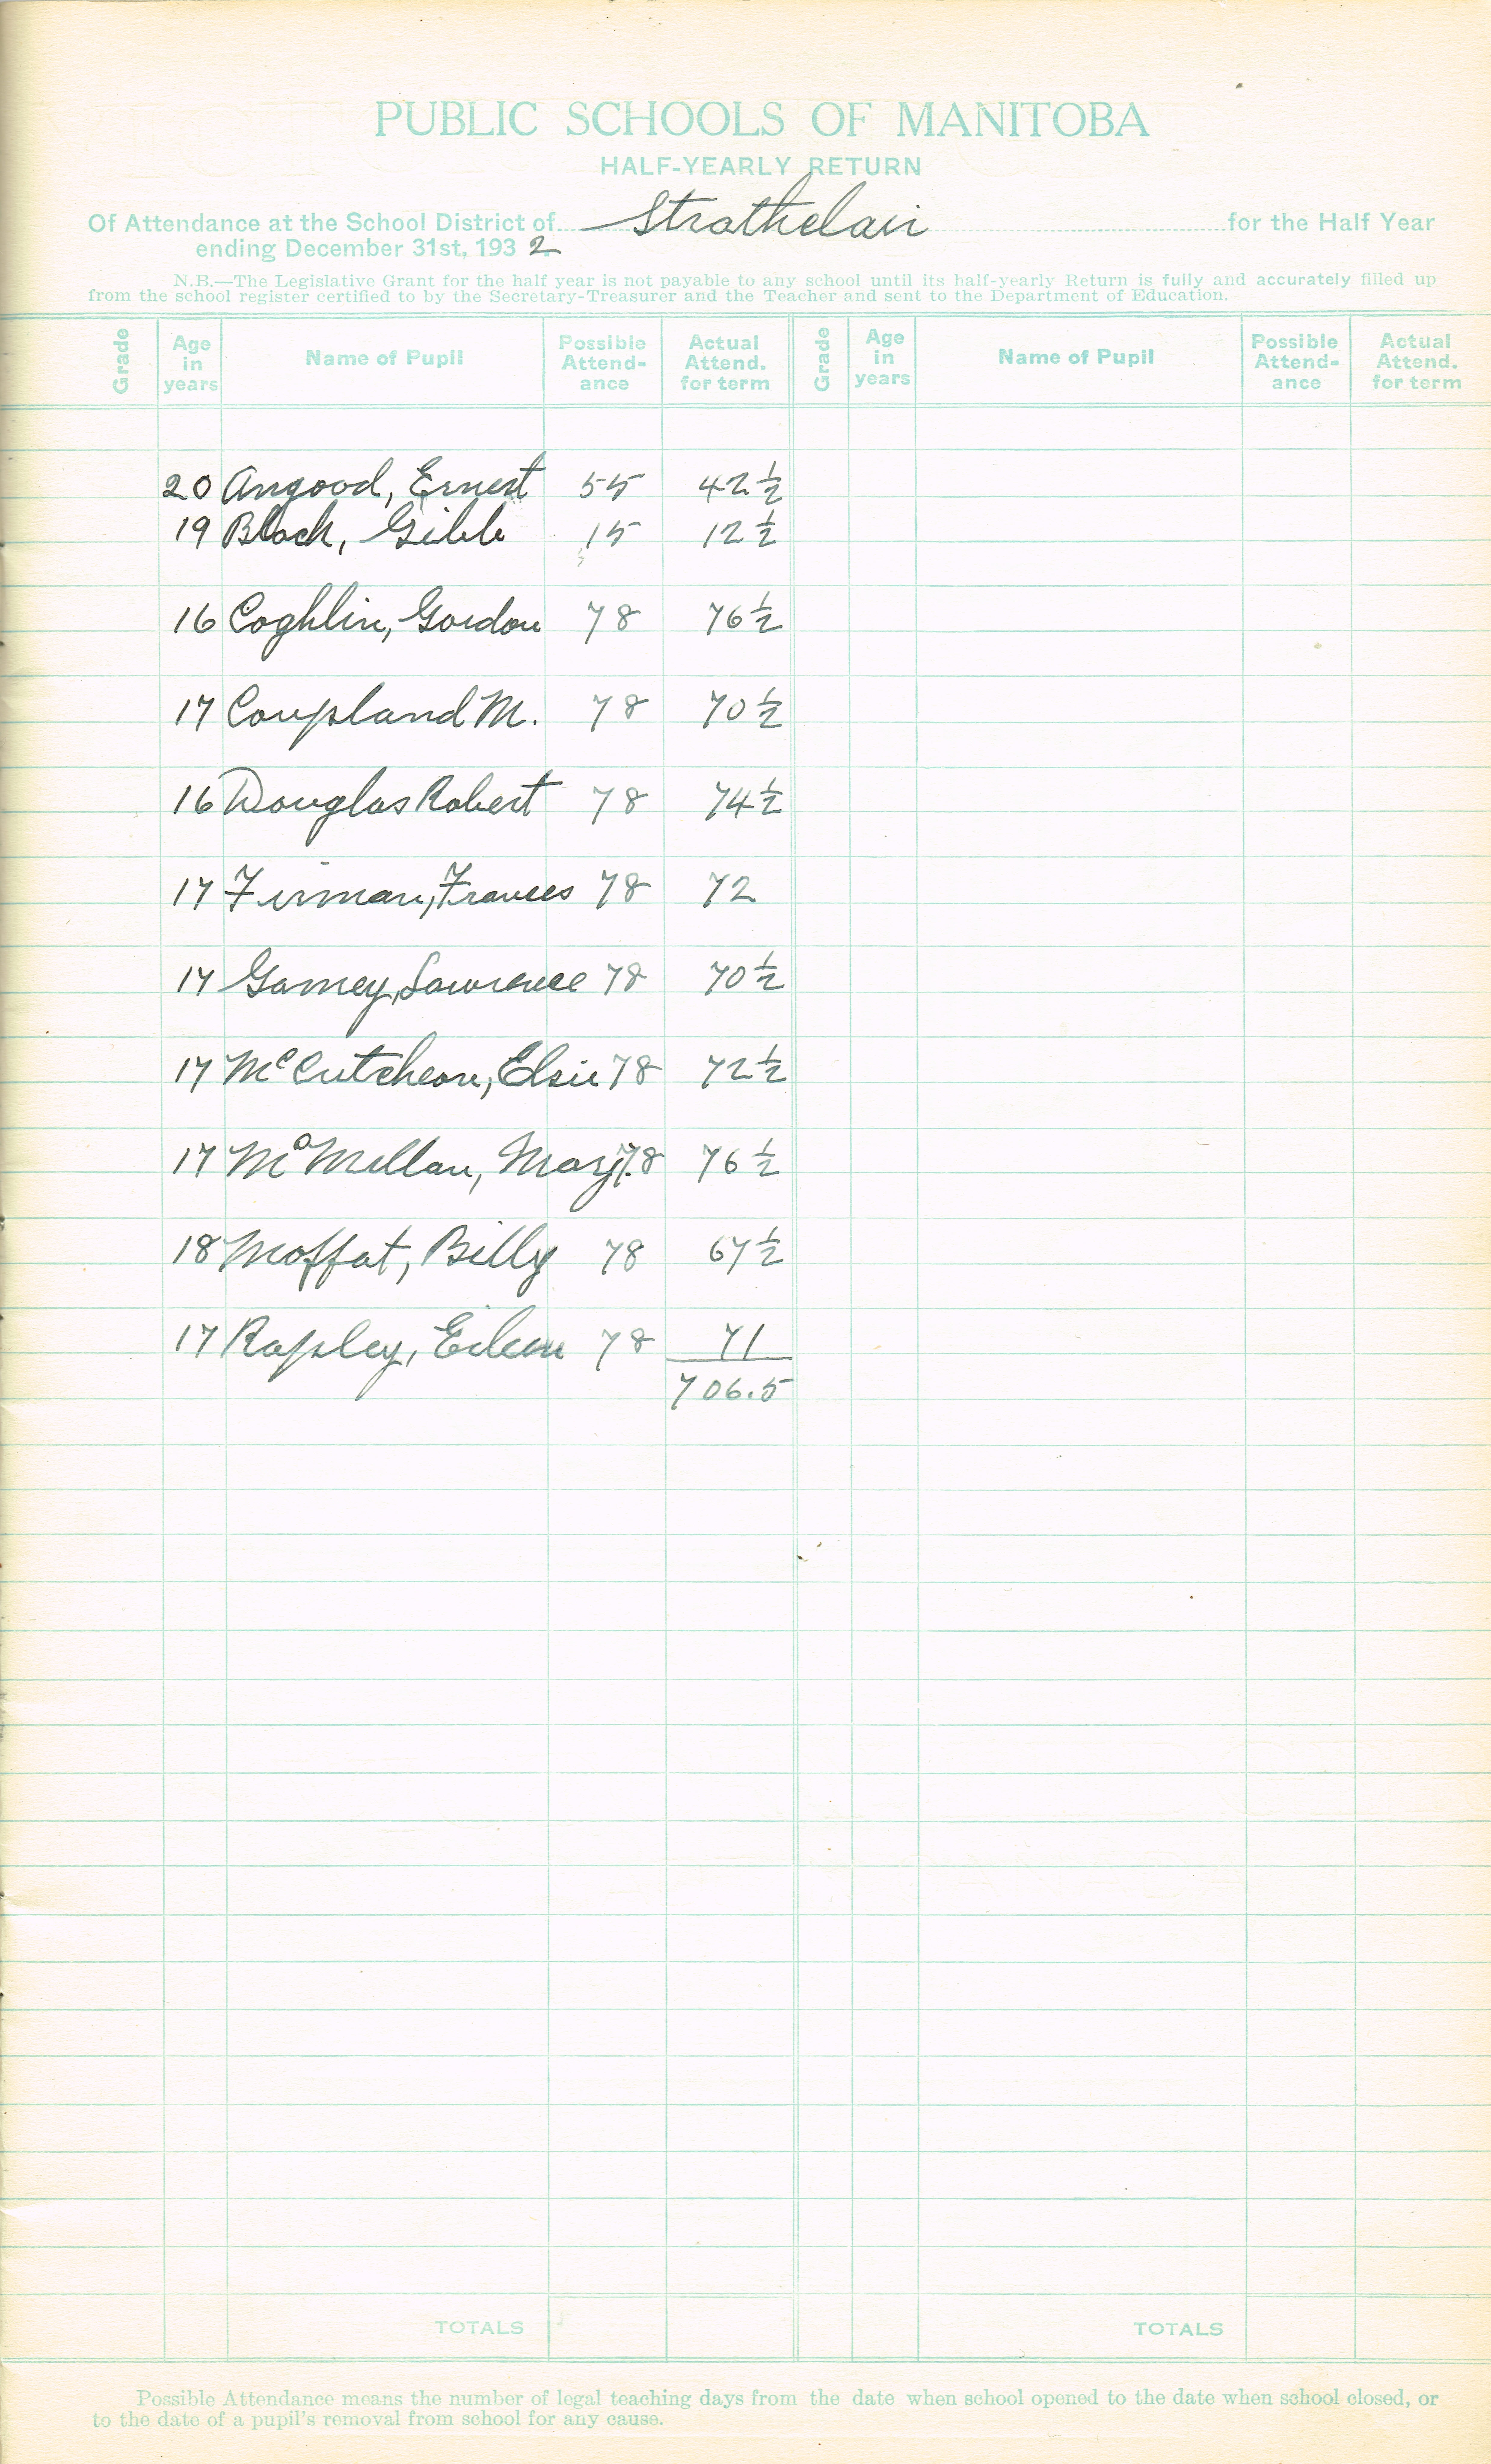 PUBLIC SCHOOLS OF MANITOBA
HALF-YEARLY RETURN
Of Attendance at the School District of Strathclair for the Half Year
ending December 31st, 1932
N.B.—The Legislative Grant for the half year is not payable to any school until its half-yearly Return is fully and accurately filled up
from the school register certified to by the Secretary-Treasurer and the Teacher and sent to the Department of Education.
Grade Age in years Name of Pupil Possible Attend-ance Actual Attend. for term Grade Age in years Name of Pupil Possible Attend-ance Actual Attend. for term
20 Angood, Ernest 55 42 1/2
19 Black, Gibb 15 12 1/2
16 Coghlin, Gordon 78 76 1/2
17 Coupland M. 78 70 1/2
16 Douglas Robert 78 74 1/2
17 Firman, Frances 78 72
17 Gamey, Lawrence 78 70 1/2
17 McCutcheon, Elsie 78 72 1/2
17 McMillan, Marj. 78 76 1/2
18 Moffat, Billy 78 67 1/2
17 Rapley, Eileen 78 71
706.5
TOTALS TOTALS
Possible Attendance means the number of legal teaching days from the date when school opened to the date when school closed, or
to the date of a pupil's removal from school for any cause.